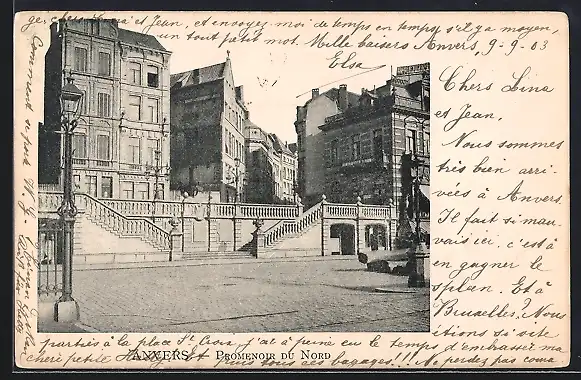 ger chers Lina et Jean, et envoyez moi de temps en temps s'il y a moyen,
un tout petit mot. Mille baisers Anvers, 9-9-03
Elsa
Chers Lina
et Jean,
Nous sommes
très bien arri-
vées à Anvers.
Il fait si mau-
vais ici, c'est à
en gagner le
spleen. Et à
Bruxelles? Nous
étions si vite
parties à la place St. J'ai à peine eu le temps d'embrasser ma
chère petite et puis tous ces bagages!!! Ne perdez pas
ANVERS — PROMENOIR DU NORD
Comment